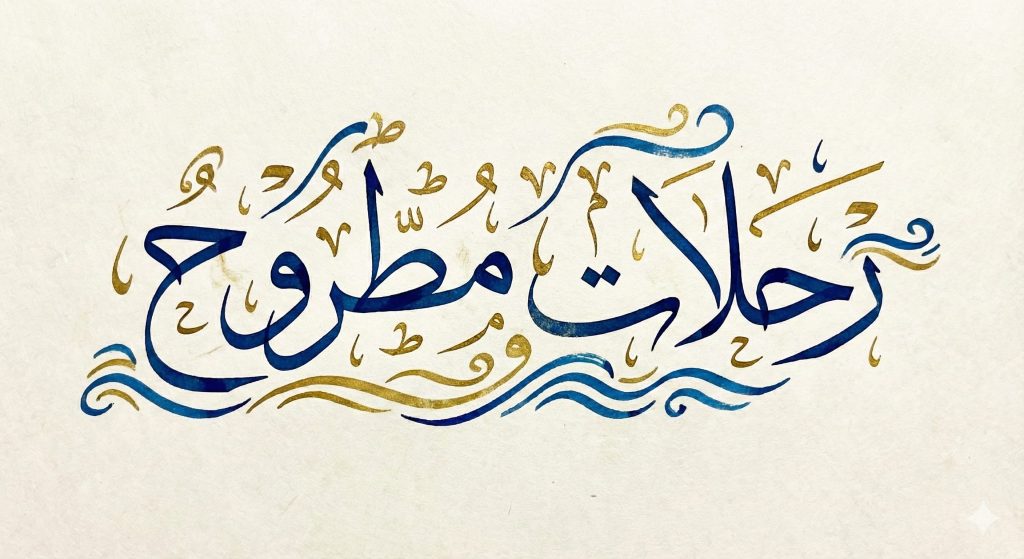 رحلات مطّروحُ